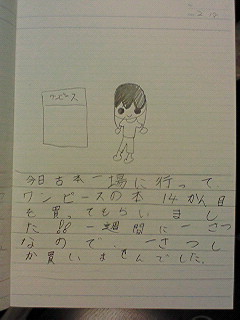 ワンピース
今日古本一場に行って
ワンピースの本14かん目
を買ってもらいまし
た!!一週間に一さつ
なので、一さつし
か買いませんでした。